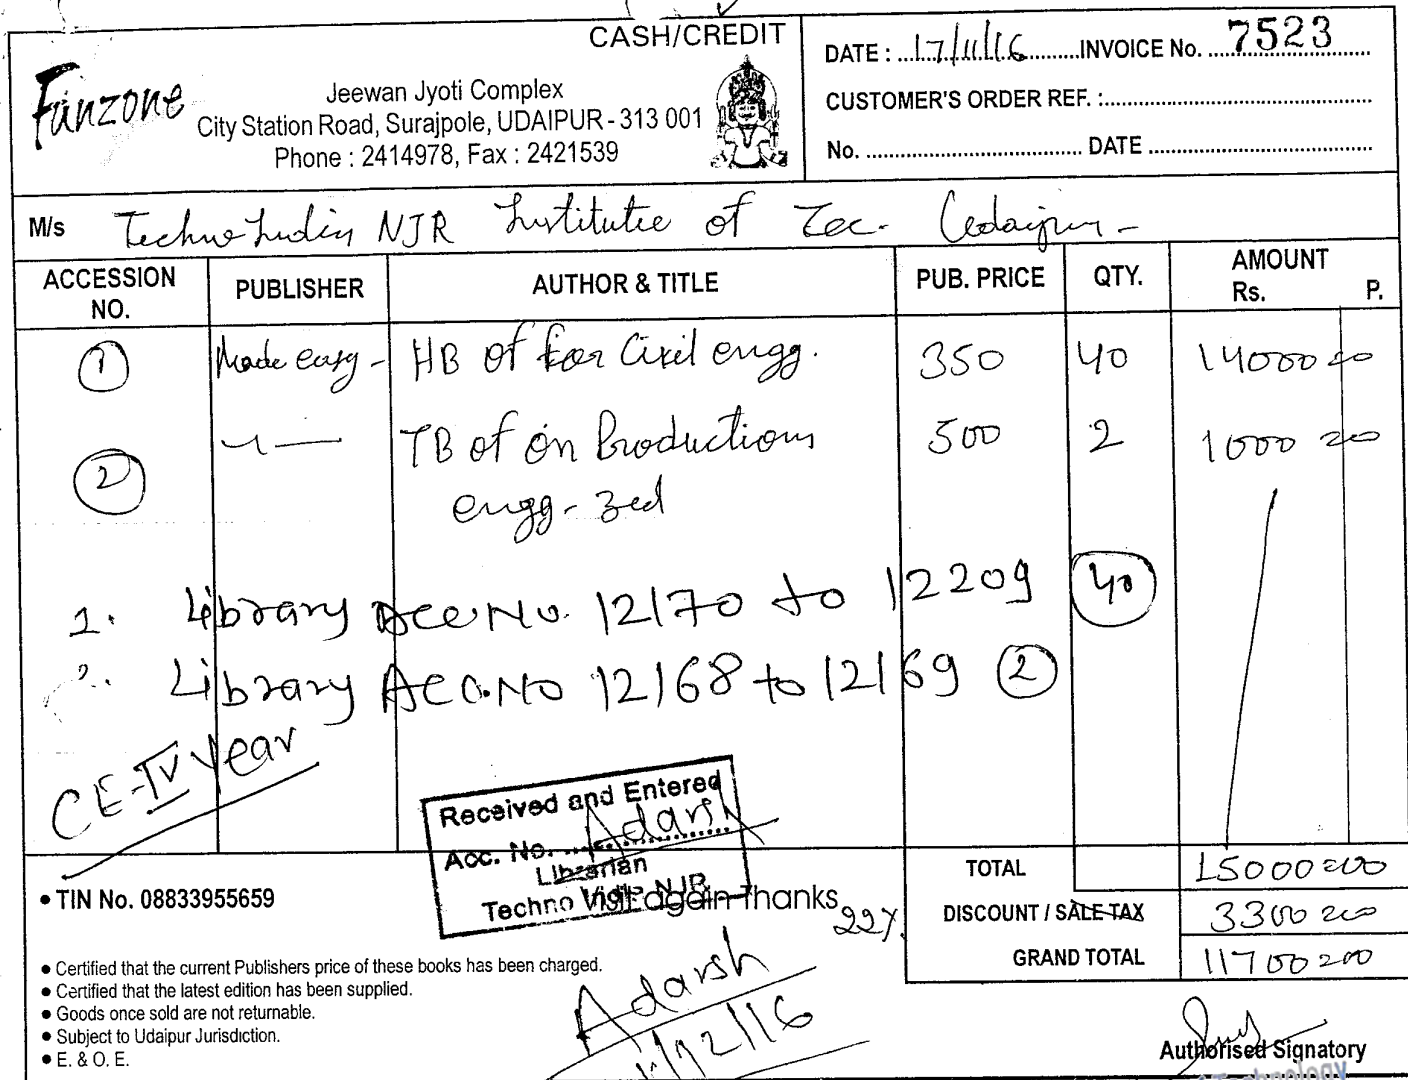 CASH/CREDIT
Fanzone
Jeewan Jyoti Complex
City Station Road, Surajpole, UDAIPUR - 313 001
Phone : 2414978, Fax : 2421539
DATE : 17/11/16 INVOICE No. 7523
CUSTOMER'S ORDER REF. :
No. DATE
M/s Techno India NJR Institute of Tec. Udaipur-
ACCESSION NO. PUBLISHER AUTHOR & TITLE PUB. PRICE QTY. AMOUNT Rs. P.
1 Made easy - HB of for Civil engg. 350 40 14000=00
2 TB of on Productions 500 2 1000=00
engg-
1. Library Acc No. 12170 to 12209 40
2. Library Acc. No 12168 to 12169 2
CE-IV Year
Received and Entered
Acc. No. Adarsh
Librarian
Techno NJR
Visit again Thanks
TOTAL 15000=00
• TIN No. 08833955659
22% DISCOUNT / SALE TAX 3300=00
GRAND TOTAL 11700=00
• Certified that the current Publishers price of these books has been charged.
• Certified that the latest edition has been supplied.
• Goods once sold are not returnable.
• Subject to Udaipur Jurisdiction.
• E. & O. E.
Adarsh
/12/16
Authorised Signatory